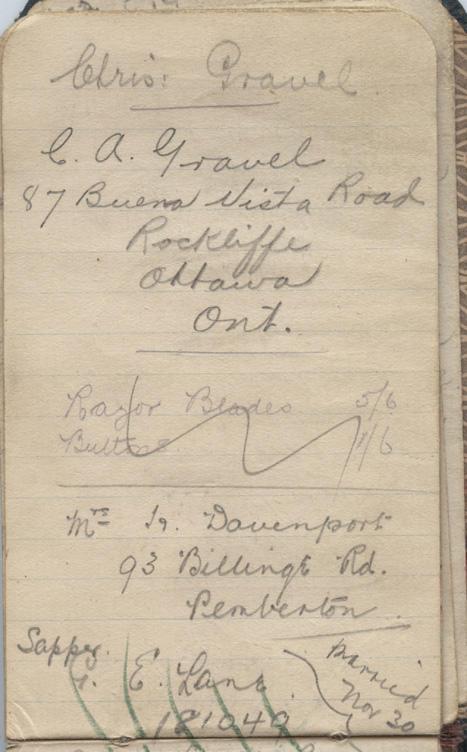 Chris: Gravel
C. A. Gravel
87 Buena Vista Road
Rockliffe
Ottawa
Ont.
Razor Blades 5/6
1/6
Mrs Davenport
93 Billinge Rd.
Pemberton.
Sapper.
E. Lane
Married
Nov 30
181049